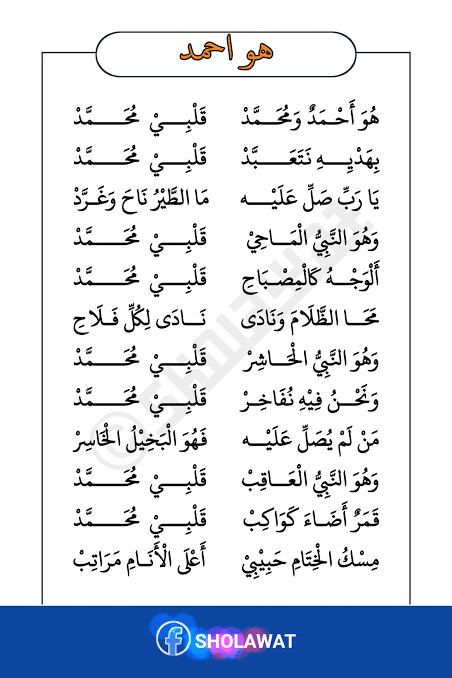 هو احمد
هُوَ أَحْمَدٌ وَمُحَمَّدْ قَلْبِيْ مُحَمَّدْ
بِهَدْيِهِ نَتَعَبَّدْ قَلْبِيْ مُحَمَّدْ
يَا رَبِّ صَلِّ عَلَيْه مَا الطَّيْرُ نَاحَ وَغَرَّدْ
وَهُوَ النَّبِيُّ الْمَاحِيْ قَلْبِيْ مُحَمَّدْ
أَلْوَجْهُ كَالْمِصْبَاحِ قَلْبِيْ مُحَمَّدْ
مَحَا الظَّلَامَ وَنَادَى نَادَى لِكُلِّ فَلَاحِ
وَهُوَ النَّبِيُّ الْحَاشِرْ قَلْبِيْ مُحَمَّدْ
وَنَحْنُ فِيْهِ نُفَاخِرْ قَلْبِيْ مُحَمَّدْ
مَنْ لَمْ يُصَلِّ عَلَيْه فَهُوَ الْبَخِيْلُ الْخَاسِرْ
وَهُوَ النَّبِيُّ الْعَاقِبْ قَلْبِيْ مُحَمَّدْ
قَمَرٌ أَضَاءَ كَوَاكِبْ قَلْبِيْ مُحَمَّدْ
مِسْكُ الْخِتَامِ حَبِيْبِيْ أَعْلَى الْأَنَامِ مَرَاتِبْ
SHOLAWAT